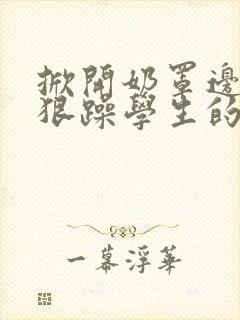 掀開奶罩邊
狠躁學生的
一幕浮華